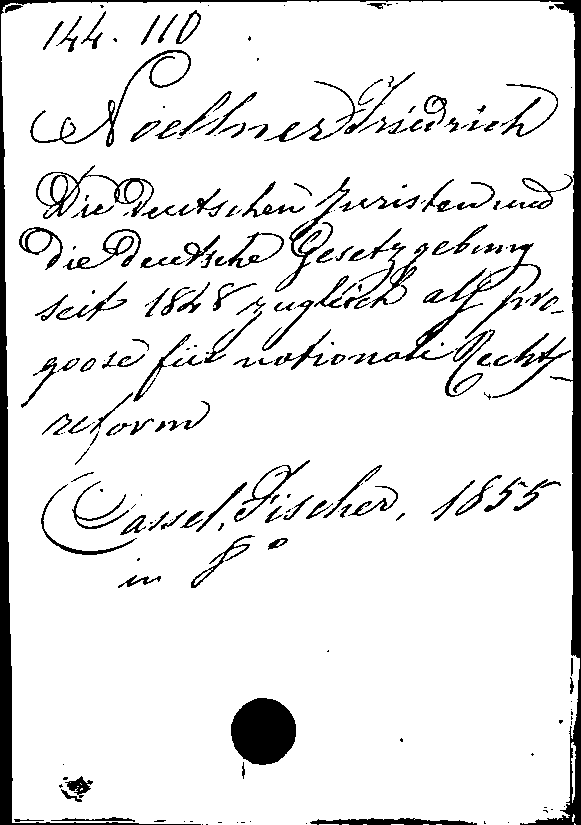 144. 110
Noellner Friedrich
Die deutschen Juristen und
die deutsche Gesetzgebung
seit 1848 zugleich als pro-
goose für nationale Rechts-
reform
Cassel, Fischer, 1855
in 8°